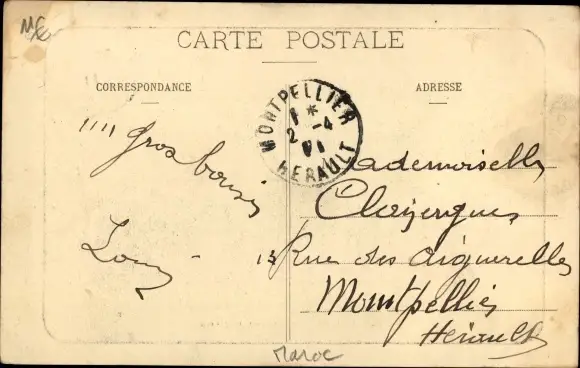 CARTE POSTALE
CORRESPONDANCE
ADRESSE
MONTPELLIER
HERAULT
"" Gros bousis
Louis
Mademoiselle
Rue des Aiguerelles
Montpellier
Hérault
Maroc